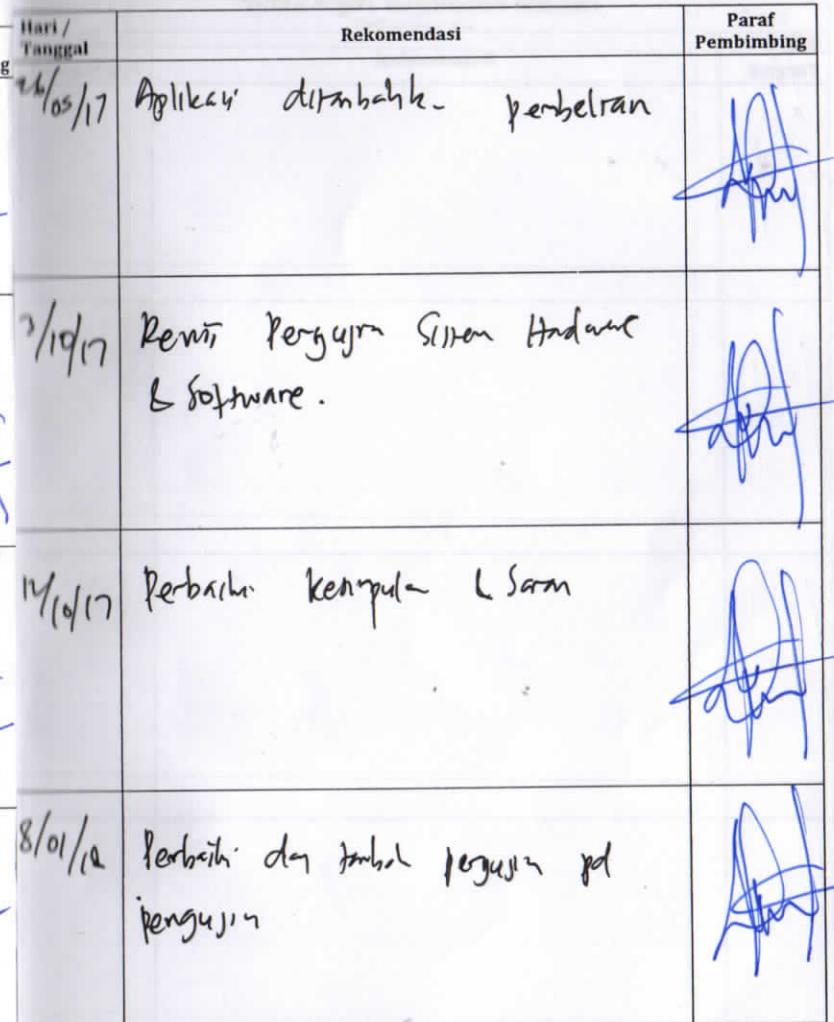 Hari /
Tanggal
Rekomendasi
Paraf
Pembimbing
g
/05/17
Aplikasi ditambahk- pembelian
3/10/17
Revisi Pengujn Sistem Hardware
& Software.
/10/17
Perbaiki kesimpula & Saran
8/01/18
Perbaiki dan tambah pd
pengujin